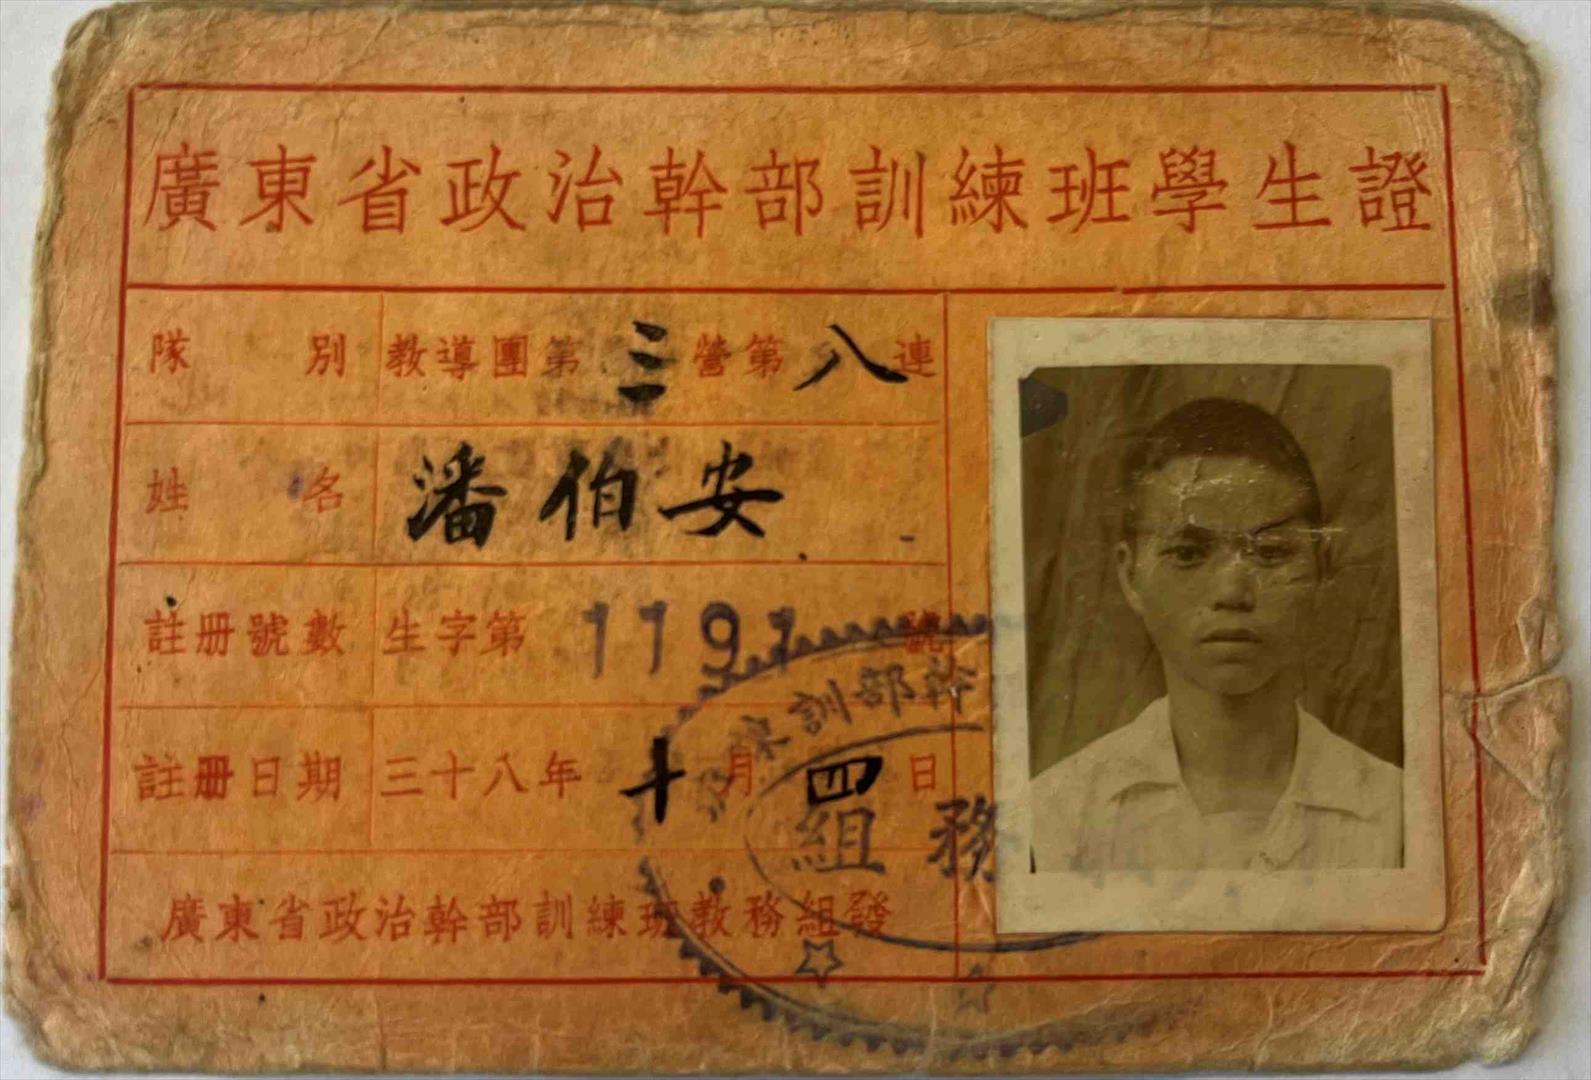 廣東省政治幹部訓練班學生證
隊別 教導團第三營第八連
姓名 潘伯安
註册號數 生字第1197號
註册日期 三十八年十月四日
廣東省政治幹部訓練班教務組發
幹部訓練
務組